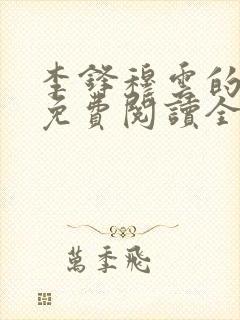 李鋒穆雲的
免費閱讀全
萬季飛